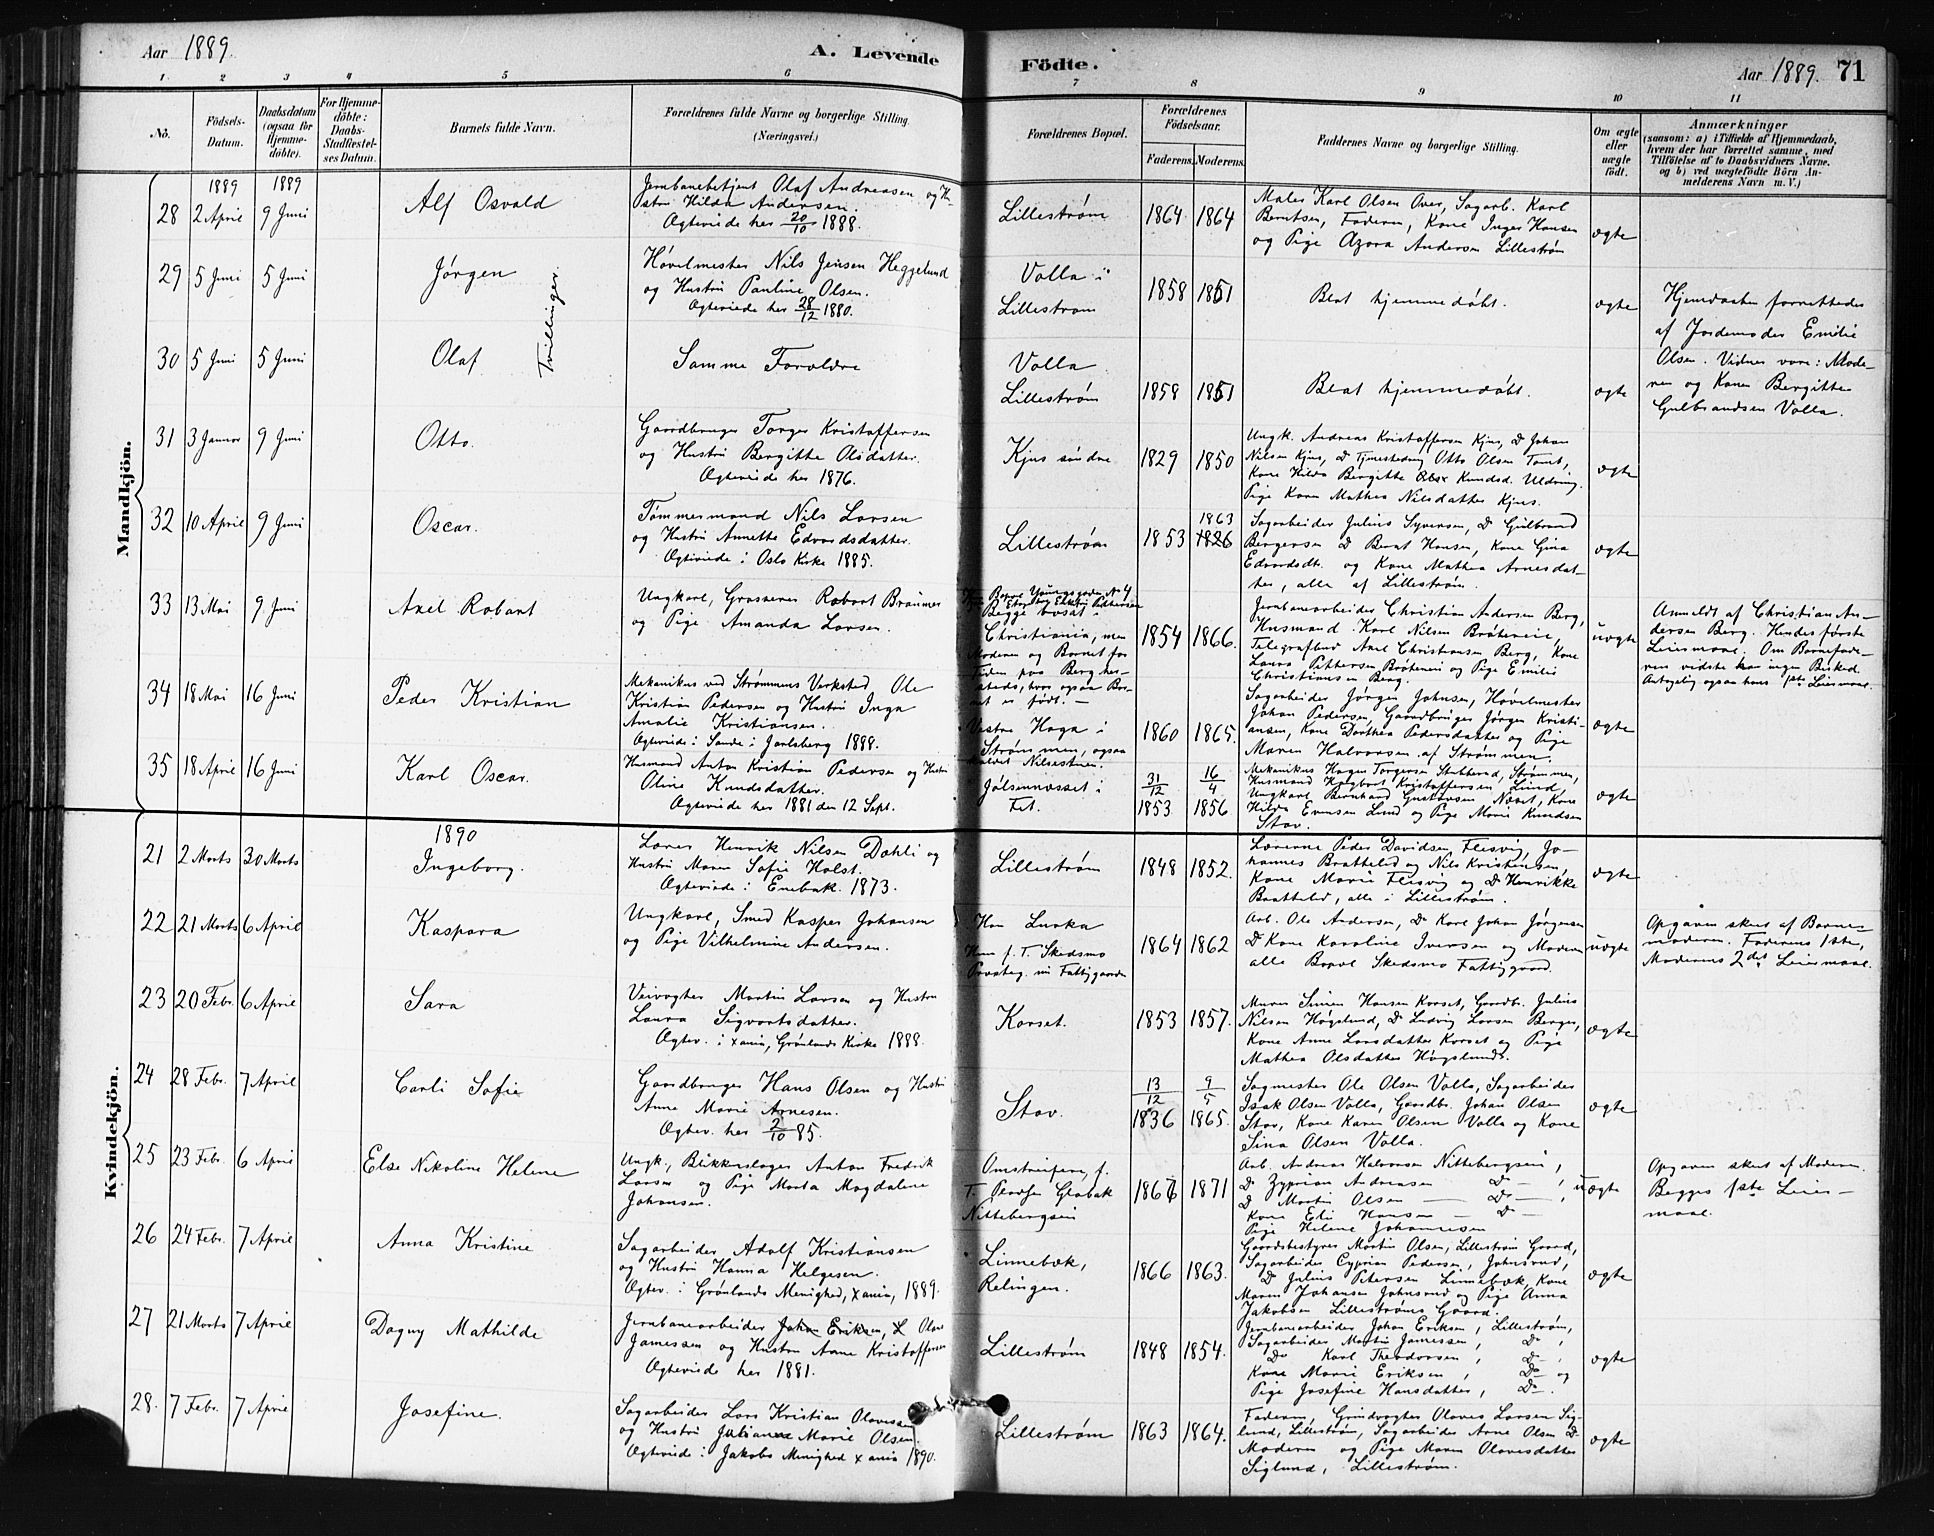 Aar 1889.
A. Levende Födte.
Aar 1889. 71
1 2 3 4 5 6 7 8 9 10 11
No.
Födsels-Datum.
Daabsdatum (ogsaa for Hjemmedöbte).
For Hjemmedöbte: Daabs-Stadfæstelses Datum.
Barnets fulde Navn.
Forældrenes fulde Navne og borgerlige Stilling (Næringsvei.)
Forældrenes Bopæl.
Forældrenes Födselsaar.
Faderens. Moderens.
Faddernes Navne og borgerlige Stilling.
Om ægte eller uægte födt.
Anmærkninger
(saasom: a) i Tilfælde af Hjemmedaab,
hvem der har forrettet samme, med
Tilföielse af to Daabsvidners Navne,
og b) ved uægtefödte Börn An-
melderens Navn m. V.)
Mandkjön.
1889 1889
28 2 April 9 Juni
Alf Osvald
Jernbanebetjent Olaf Andreasen og H-
ustru Hilda Andersen.
Ægteviede her 20/10 1888.
Lillestrøm
1864 1864
Maler Karl Olsen Over, Sagarb. Karl
Berntsen, Faderen, Kone Inger Hansen
og Pige Azora Andersen Lillestrøm
ægte
29 5 Juni 5 Juni
Jørgen
Tvillinger.
Høvelmester Nils Jensen Heggelund
og Hustru Pauline Olsen.
Ægteviede her 28/12 1880.
Volla i
Lillestrøm
1858 1861
Blot hjemmedøbt.
ægte
Hjemdaaben forrettedes
af Jordemoder Emilie
Olsen. Vidner vare: Mode-
ren og Kone Bergitte
Gulbrandsen Volla.
30 5 Juni 5 Juni
Olaf
Samme Forældre
Volla
Lillestrøm
1858 1861
Blot hjemmedøbt.
ægte
31 3 Januar 9 Juni
Otto.
Gaardbruger Torger Kristoffersen
og Hustru Bergitte Olsdatter.
Ægteviede her 1876.
Kjus søndre
1829 1850
Ungk. Andreas Kristoffersen Kjus, Do Johan
Nilsen Kjus, Do Tjenestedreng Otto Olsen Tomt,
Kone Hilda Bergitte Knudsd. Uldreng.
Pige Karen Mathea Nilsdatter Kjus.
ægte
32 10 April 9 Juni
Oscar.
Tømmermand Nils Larsen
og Hustru Annette Edvardsdatter.
Ægteviede i Oslo Kirke 1885.
Lillestrøm
1853 1863 1826
Sagarbeider Julius Syversen, Do Gulbrand
Bergersen Do Bernt Hansen, Kone Gina
Edvardsdt. og Kone Mathea Arnesdat-
ter, alle af Lillestrøm.
ægte
33 13 Mai 9 Juni
Axel Robart
Ungkarl, Grosserer Robart Braumer
og Pige Amanda Larsen.
Begge bosat i
Christiania, men
Moderen og Barnet for
Tiden paa Berg her-
steds, hvor ogsaa Bar-
net er født. —
1854 1866.
Jernbanearbeider Christian Andersen Berg,
Husmand Karl Nilsen Bråteneie,
Telegrafbud Axel Christiansen Berg, Kone
Laura Pettersen Bråteneie og Pige Emilie
Christiansen Berg.
uægte
Anmeldt af Christian An-
dersen Berg. Hendes første
Leiermaal. Om Barnefade-
ren vidste han ingen Besked.
Antagelig ogsaa hans 1ste Leiermaal.
34 18 Mai 16 Juni
Peder Kristian
Mekanikus ved Strømmens Værksted Ole
Kristian Pedersen og Hustru Inga
Amalie Kristiansen.
Ægteviede i Sande i Jarlsberg 1888.
Vestre Haga i
Strømmen, ogsaa
kaldet Nilsestuen.
1860 1865.
Sagarbeider Jørgen Johnsen, Høvelmester
Johan Pedersen, Gaardbruger Jørgen Kristi-
ansen, Kone Dorthea Pedersdatter og Pige
Maren Halvorsen af Strømmen.
ægte
35 18 April 16 Juni
Karl Oscar.
Husmand Anton Kristian Pedersen og Hustru
Oline Knudsdatter.
Ægteviede her 1881 den 12 Sept.
Jølsennæsset i
Fet.
31/12 1853 16/4 1856
Mekanikus Hagen Torgersen Stubberud, Strømmen,
Husmand Hagbart Kristoffersen Lund,
Ungkarl Bernhard Gustavsen Næset, Kone
Hilda Evensen Lund og Pige Marie Knudsen
Stav.
ægte
Kvindekjön.
1890
21 2 Marts 30 Marts
Ingeborg.
Lærer Henrik Nilsen Dahli og
Hustru Maren Sofie Holst.
Ægteviede i Enebak. 1873.
Lillestrøm
1848 1852.
Lærerne Peder Davidsen Flesvig, Jo-
hannes Bratteled og Nils Kristensen,
Kone Marie Flesvig og Do Henrikke
Bratteled, alle i Lillestrøm.
ægte
22 21 Marts 6 April
Kaspara
Ungkarl, Smed Kasper Johansen
og Pige Vilhelmine Andersen.
Han Lurka
Hun f. T. Skedsmo
Præsteg. ni Fattiggaarden
1864 1862
Arb. Ole Andersen, Do Karl Johan Jørgensen
Do Kone Karoline Iversen og Moderen
alle Bopæl Skedsmo Fattiggaard.
uægte
Opgaven sket af Barne-
moderen. Faderens 1ste,
Moderens 2det Leiermaal.
23 20 Febr. 6 April
Sara
Veivogter Martin Larsen og Hustru
Laura Sigvartsdatter.
Ægtev. i Xania, Grønlands Kirke 1888.
Korset.
1853 1857.
Murer Simen Hansen Korset, Gaardbr. Julius
Nilsen Høgslund, Do Ludvig Larsen Berger,
Kone Anne Larsdatter Korset og Pige
Mathea Olsdatter Høgslund.
ægte
24 28 Febr. 7 April
Carli Sofie
Gaardbruger Hans Olsen og Hustru
Anne Marie Arnesen.
Ægtev. her 2/10 85.
Stav.
13/12 1836 9/5 1865.
Sagmester Ole Olsen Volla, Sagarbeider
Isak Olsen Volla, Gaardbr. Johan Olsen
Stav, Kone Karen Olsen Volla og Kone
Sina Olsen Volla.
ægte
25 23 Febr. 6 April
Else Nikoline Helene
Ungk., Blikkenslager Anton Fredrik
Larsen og Pige Marta Magdalene
Johansen.
Omstreifere, f.
T. Pladsen Globak
Nittebergseiet
1867 1871
Arb. Andreas Halvorsen Nittebergseiet,
Do Zyprian Andreasen Do — ,
Do Martin Olsen — Do —
Kone Eli Hansen — Do —
Pige Helene Johannesen
uægte
Opgaven skeet af Moderen.
Begges 1ste Leier-
maal.
26 24 Febr. 7 April
Anna Kristine
Sagarbeider Adolf Kristiansen
og Hustru Hanna Helgesen.
Ægtev. i Grønlands Menighed, Xania, 1889.
Linnebæk,
Relingen.
1866 1863.
Gaardsbestyrer Martin Olsen, Lillestrøm Gaard,
Sagarbeider Cyprian Pedersen, Johnsrud,
Do Julius Petersen Linnebæk, Kone
Maren Johansen Johnsrud og Pige Anna
Jakobsen Lillestrøms Gaard.
ægte
27 21 Marts 7 April
Dagny Mathilde
Jernbanearbeider Johan Eriksen, Olaves
Jamessen og Hustru Anne Kristoffersen
Ægteviede her 1881.
Lillestrøm
1848 1854.
Jernbanearbeider Johan Eriksen, Lillestrøm,
Sagarbeider Martin Jamessen, Do ,
Do Karl Theodorsen, Do ,
Kone Marie Eriksen, Do og
Pige Josefine Hansdatter, Do .
ægte
28. 7 Febr. 7 April
Josefine.
Sagarbeider Lars Kristian Olavessen
og Hustru Juliane Marie Olsen.
Ægteviede i Jakobs Menighed Xania 1890.
Lillestrøm
1863 1864.
Faderen, Grindvogter Olaves Larsen Sig-
lund, Lillestrøm, Sagarbeider Arne Olsen Do
Moderen og Pige Maren Olavesdatter
Siglund, Lillestrøm.
ægte